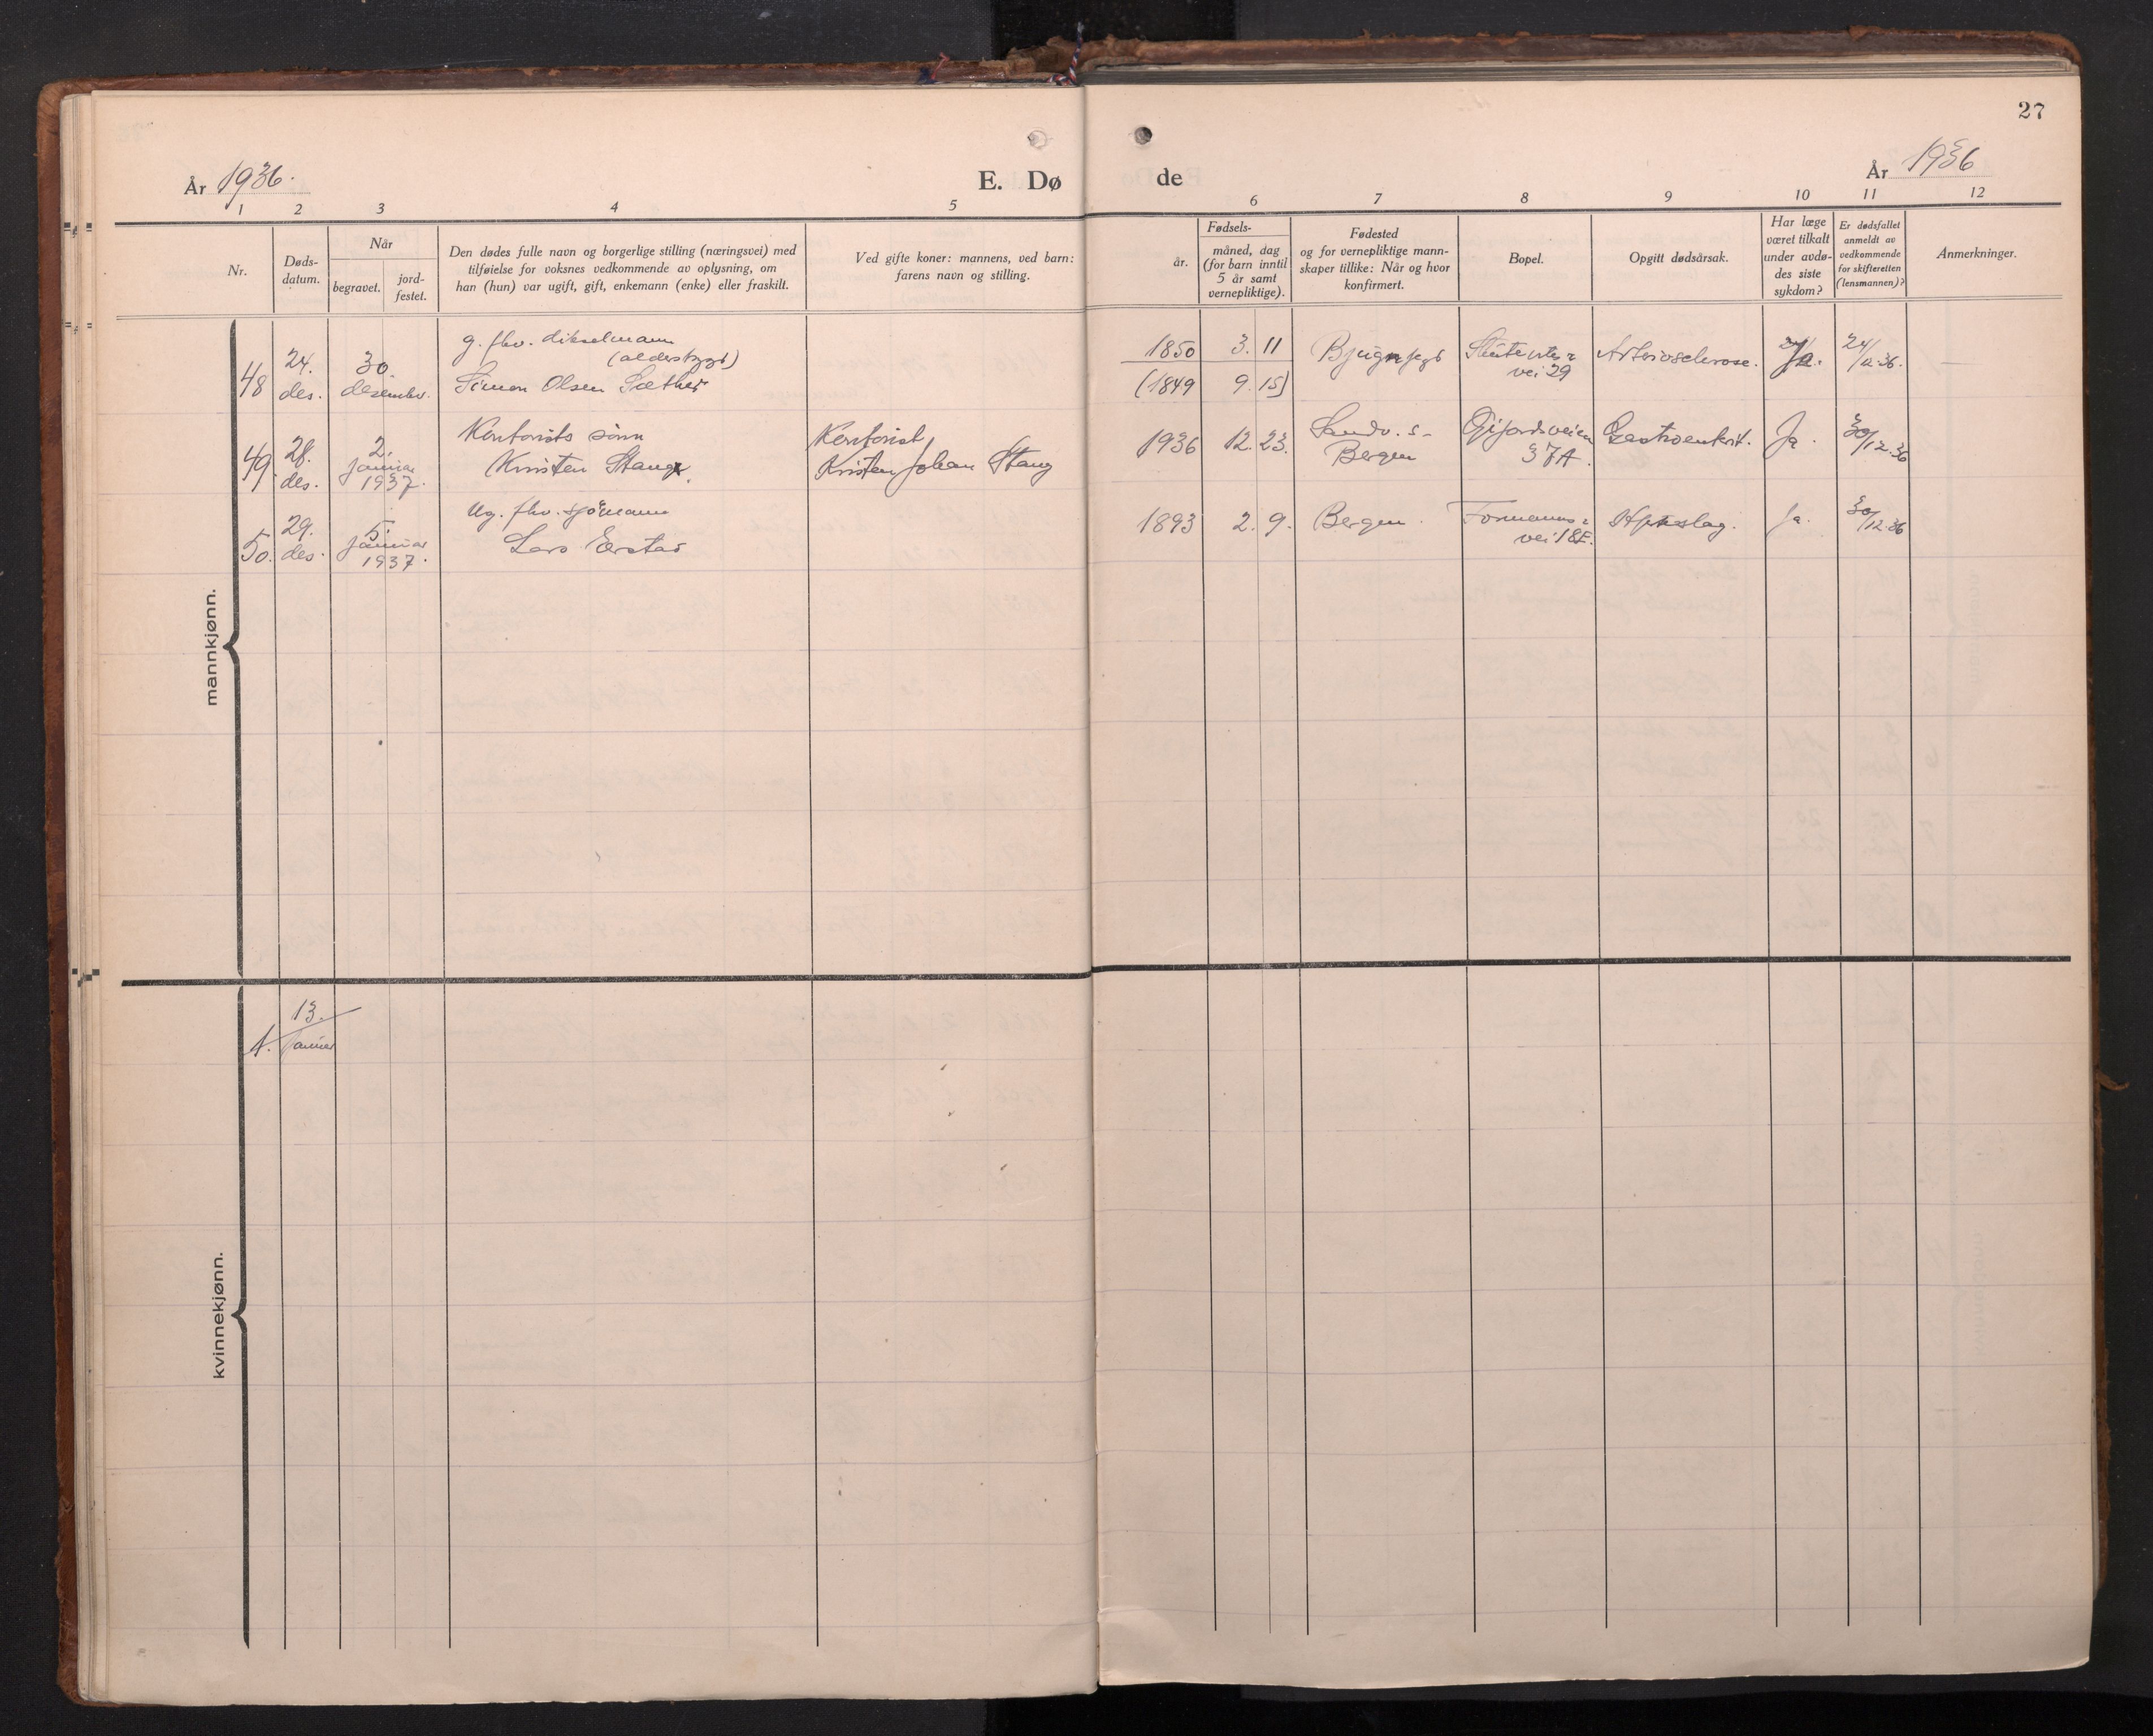 27
År 1936.
E. Dø
de
År 1936
1 2 3 4 5 6 7 8 9 10 11 12
Nr.
Døds-
datum.
Når
begravet.
jord-
festet.
Den dødes fulle navn og borgerlige stilling (næringsvei) med
tilføielse for voksnes vedkommende av oplysning, om
han (hun) var ugift, gift, enkemann (enke) eller fraskilt.
Ved gifte koner: mannens, ved barn:
farens navn og stilling.
Fødsels-
år.
måned, dag
(for barn inntil
5 år samt
vernepliktige).
Fødested
og for vernepliktige mann-
skaper tillike: Når og hvor
konfirmert.
Bopel.
Opgitt dødsårsak.
Har læge
været tilkalt
under avdø-
des siste
sykdom?
Er dødsfallet
anmeldt av
vedkommende
for skifteretten
(lensmannen)?
Anmerkninger.
mannkjønn.
48
24.
des.
30.
desember.
g. fhv.
(alderstrygd)
Simon Olsen Sæther
1850 3. 11
(1849 9. 15)
vei 29
Arteriosclerose.
Ja.
49.
28.
des.
2.
januar
1937.
Kontorists sønn
Kristen Stang.
Kontorist
Kristen Johan Stang
1936 12. 23.
Sandv. s-
Bergen
37A.
Gastroenterit.
Ja.
30/12.36
50.
29.
des.
5.
januar
1937.
Ug. fhv. sjømann
Lars Erstad
1893 2. 9.
Bergen.
Formanns=
vei 18E.
Ja.
30/12.36
kvinnekjønn.
1.
13.
Januar